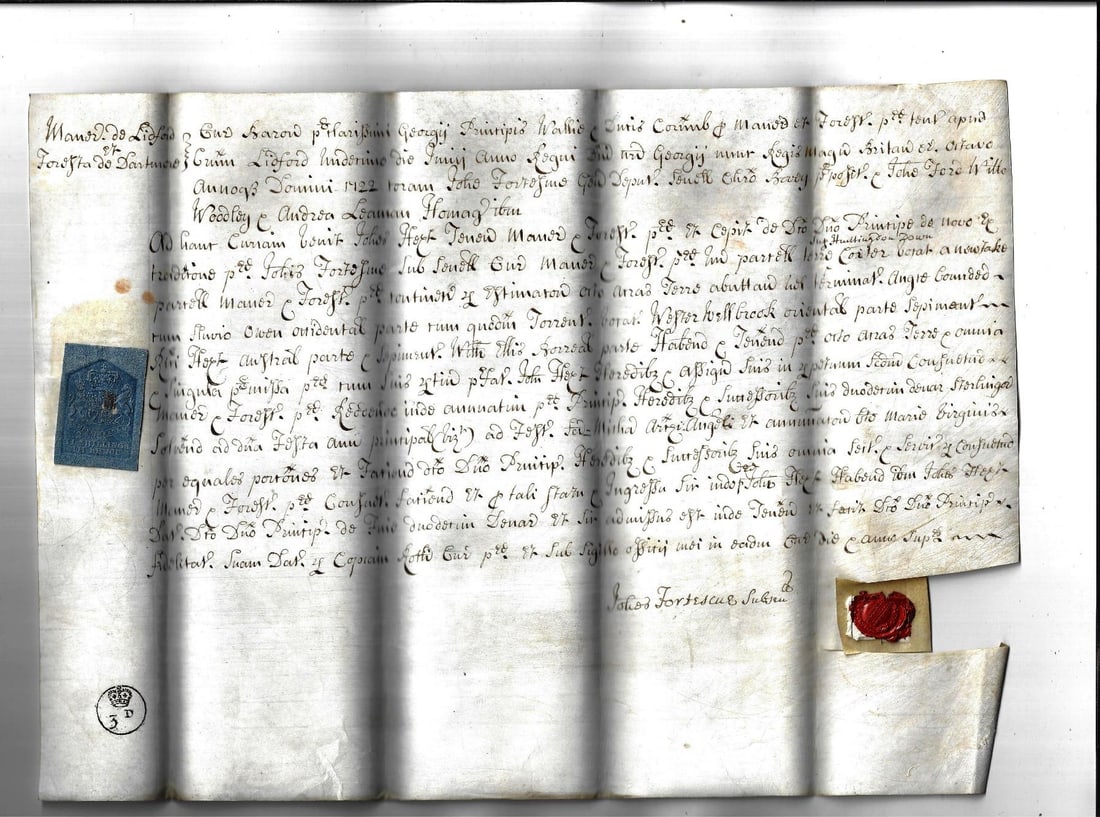 Maner. de Lidford
et
Foresta de Dartmore
Cur Baron p{re}clarissimi Georgij Principis Wallie & Ducis Cornub p Maner et Forest. p{re}d tent apud
Lidford undecimo die Junij Anno Regni Georgij nunc Regis Magn Britan &c. Octavo
Annoq Domini 1722 coram Johe Fortescue Gen Deput. Senell & Johe Ford Willo
Woodley & Andrea Leaman Homag ibm
Ad hanc Curiam venit Johes Hext Tenen Maner & Forest. p{re}d et Cepit de Dco Dno Principe de novo ex
sup Huntingdon Down
traditione p{re}d Johis Fortescue Sub Senell Cur Maner & Forest. p{re}d un parcell terre vocat a newtake
parcell Maner & Forest. p{re}d continen p Estimacon octo acras Terre abuttan vel terminat. Angre bounded
cum fluvio Owen occidental parte cum quodm Torrent. vocat. Wester Wellbrook oriental parte Sepiment
Hext Austral parte & Sepiment. Willi Ellis Borreal parte Habend & Tenend p{re}d octo acras Terre & omnia
& singula p{re}missa p{re}d cum suis ptin p{re}fat. John Hext Heredib & assign suis in ppetuum Scdm Consuetud
Maner & Forest. p{re}d Reddend inde annuatim p{re}d Princip. Heredib & Successorib suis duodecim denar Sterlingor
Solvend ad dua Festa ann principal (vizt) ad Fest. Michael Archi Angeli et annunciacon bte Marie Virginis
per equales porcones et Faciend dco Dno Princip. Heredib & Successorib suis omnia Sect. & Servic & Consuetud
Cur
Maner & Forest. p{re}d Consuet. faciend et p tali statu & Ingressu sic inde Johes Hext Habend ibm Johes Hext
Dat. Dco Dno Princip. de Fine duodecim Denar et Sic admissus est inde Tenen et fecit Dco Dno Princip.
fidelitat. Suam Dat. p Copiam Rotli Cur p{re}d et Sub Sigillo officij mei in eodm Cur die & anno Sup{ra}d
Johes Fortescue
3 D